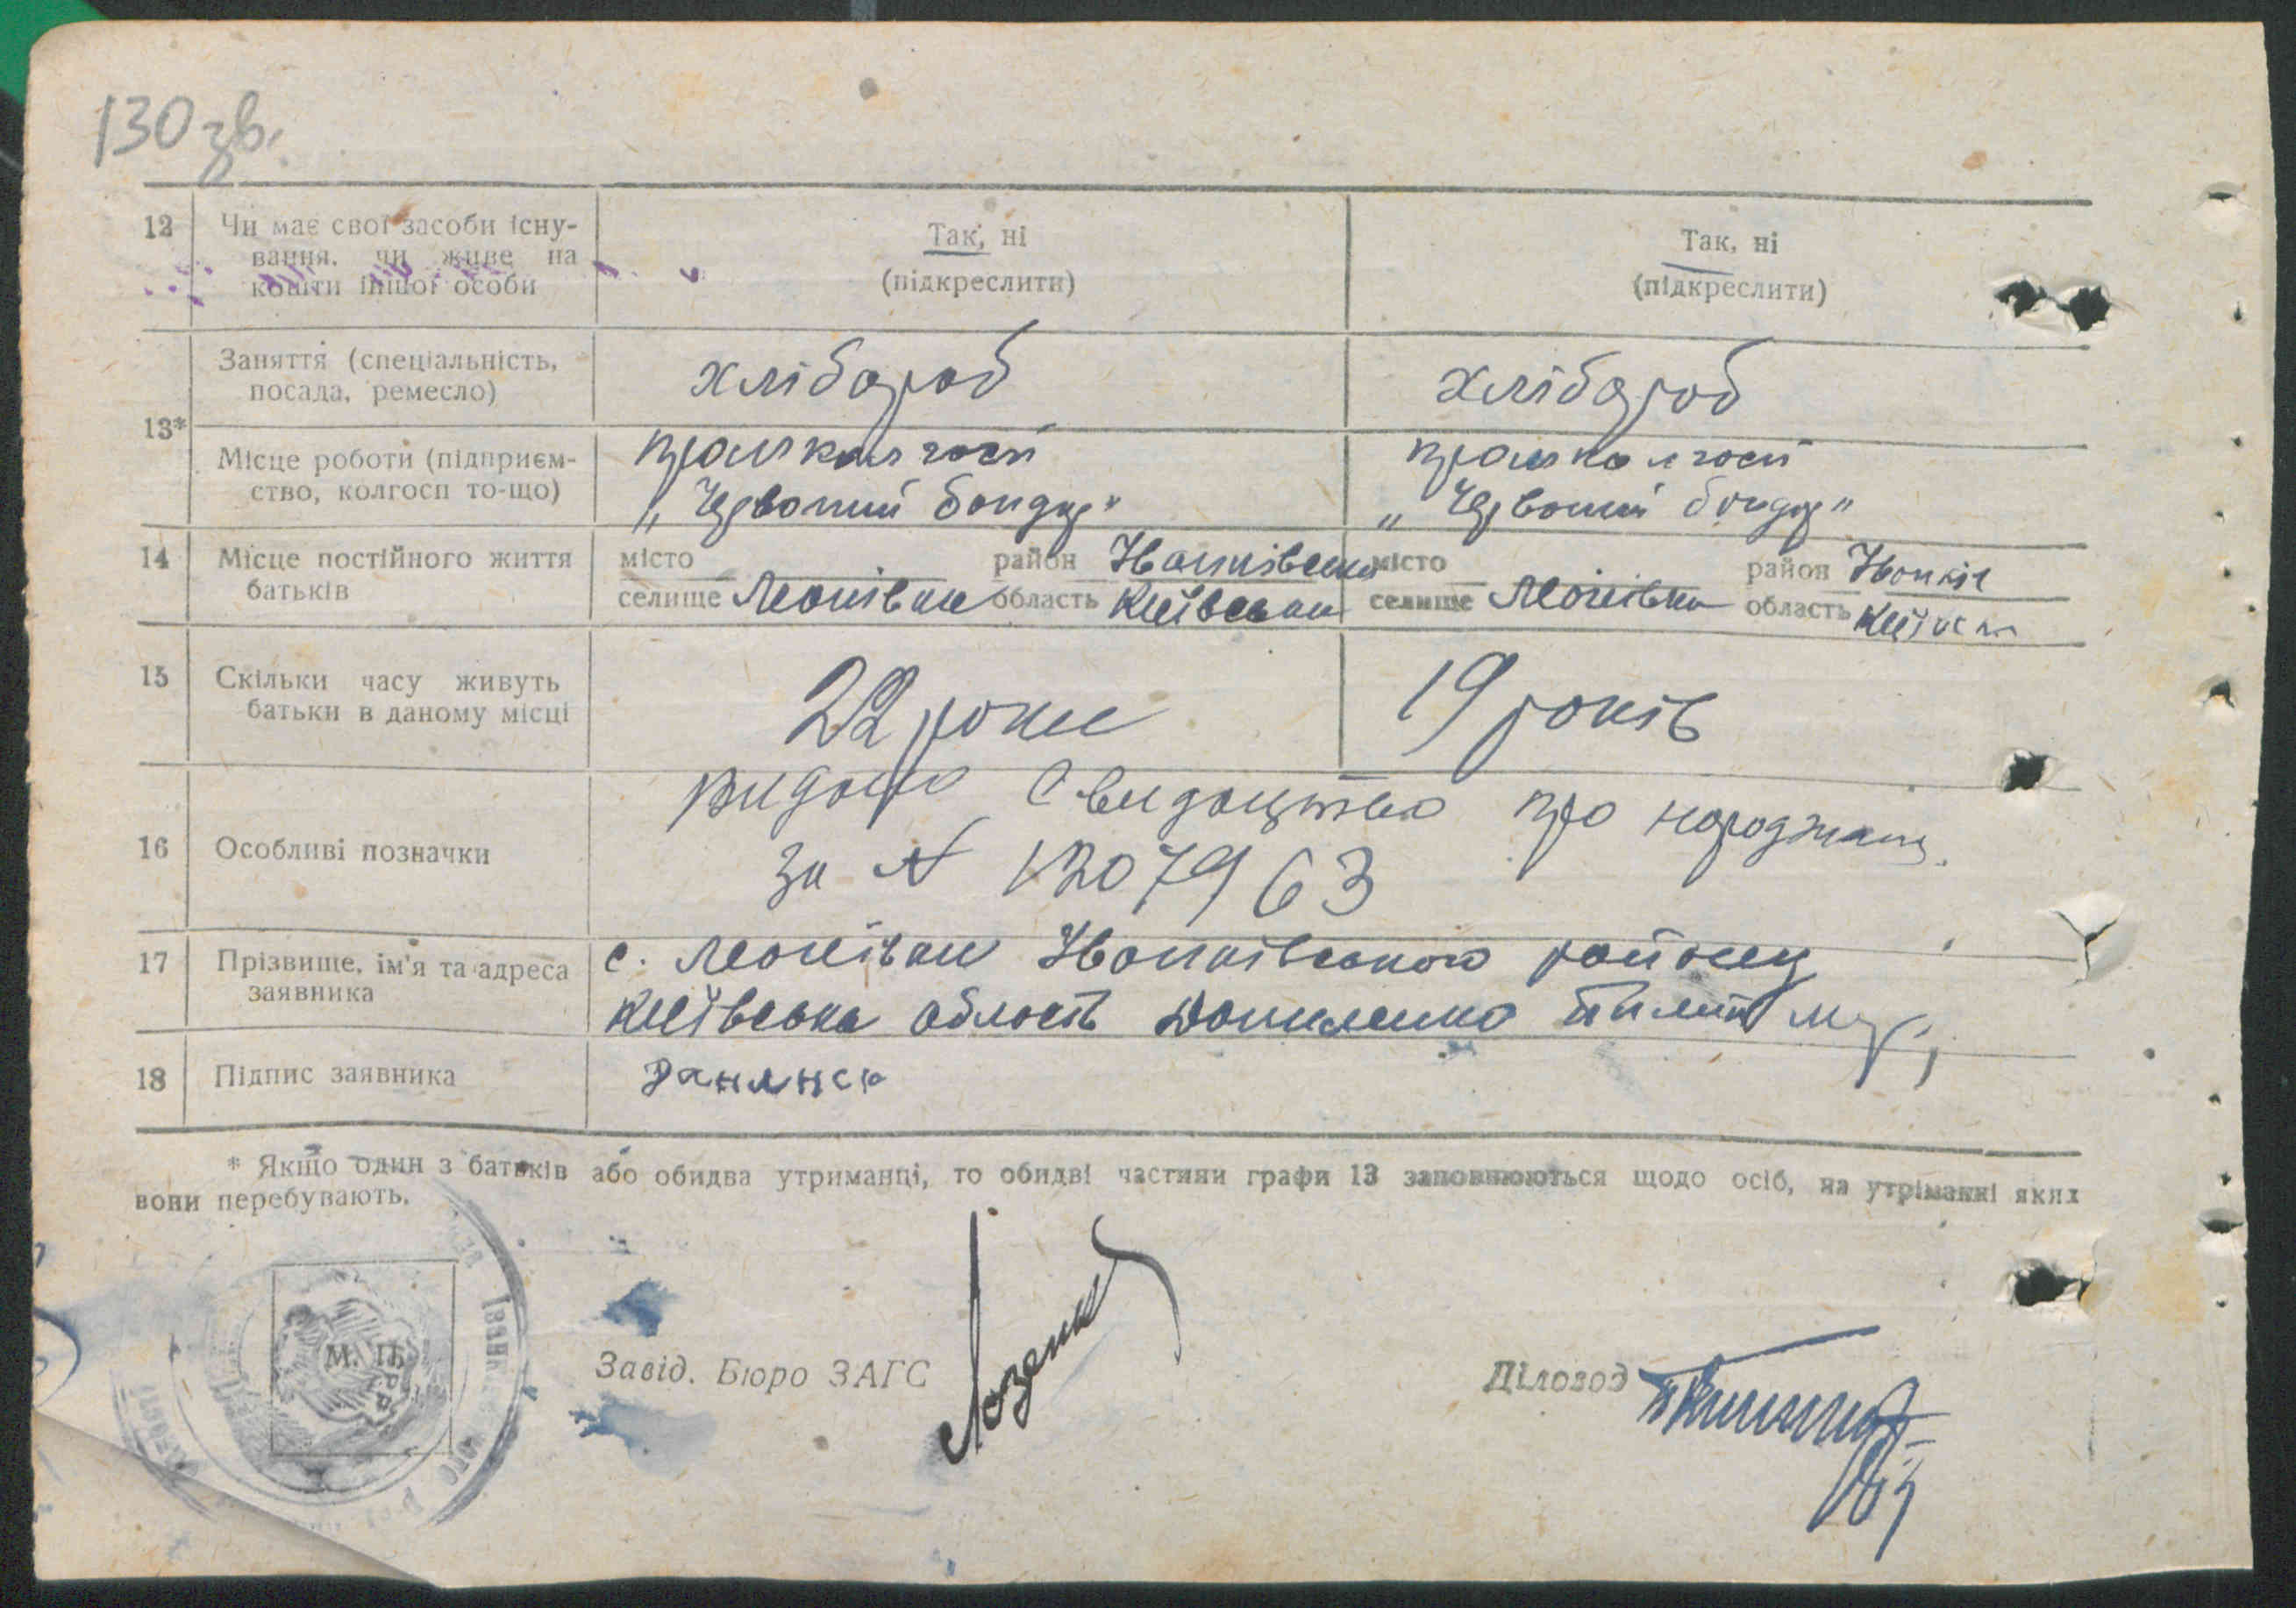 130 зв.
12 Чи має свої засоби існу- Так, ні Так, ні
вання, чи живе на (підкреслити) (підкреслити)
кошти іншої особи
13* Заняття (спеціальність, хлібороб хлібороб
посада, ремесло)
Місце роботи (підприєм- промколгосп промколгосп
ство, колгосп то-що) „Червоний бондар" „Червоний бондар"
14 Місце постійного життя місто район місто район
батьків селище Леонівка область Київська селище Леонівка область
15 Скільки часу живуть 22 роки 19 років
батьки в даному місці
видано свидоцтво про
16 Особливі позначки за № 1207963
17 Прізвище, ім'я та адреса с. Леонівка Іванківського району
заявника Київська область Даниленко
18 Підпис заявника
* Якщо один з батьків або обидва утриманці, то обидві частини графи 13 заповнюються щодо осіб, на утріманні яких
вони перебувають.
М. П.
Завід. Бюро ЗАГС Діловод